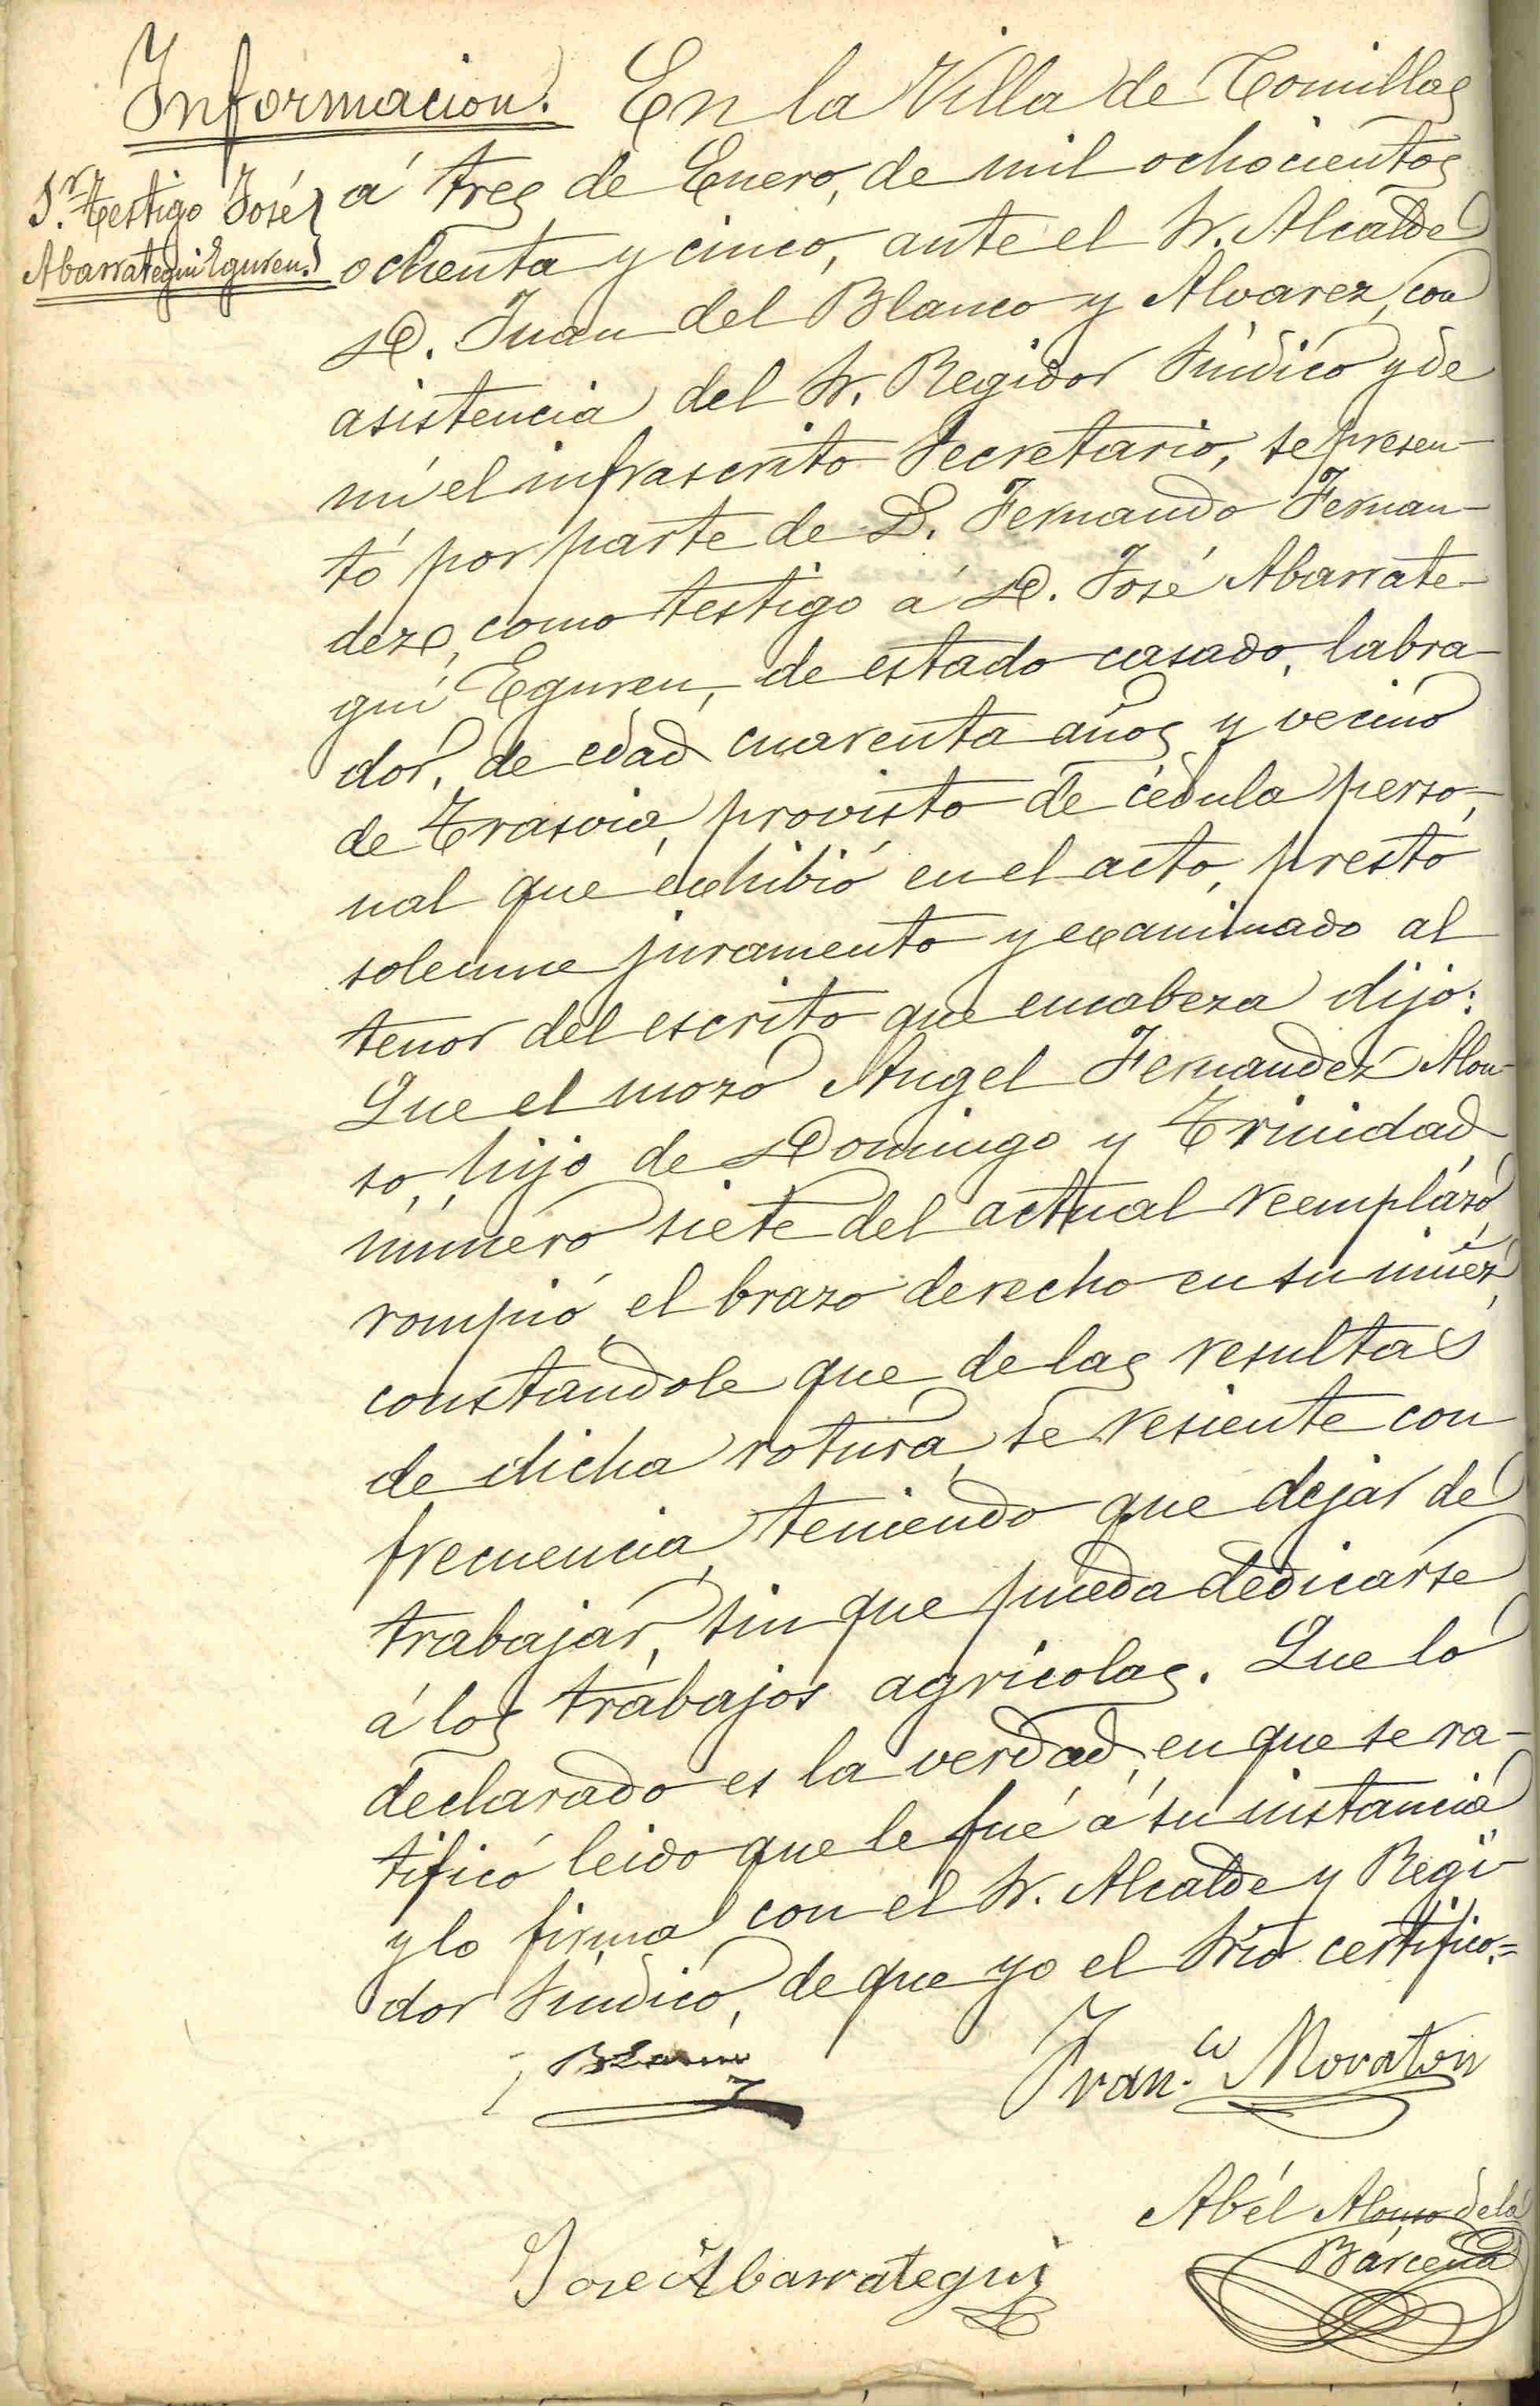 Informacion. En la Villa de Comillas
Sr. testigo José
Abarrategui Eguren.
á tres de Enero, de mil ochocientos
ochenta y cinco, ante el Sr. Alcalde
D. Juan del Blanco y Alvarez, con
asistencia del Sr. Regidor Síndico y de
mí el infrascrito Secretario, se presen-
tó por parte de D. Fernando Fernan-
dez, como testigo á D. José Abarrate-
gui Eguren, de estado casado, labra-
dor, de edad cuarenta años y vecino
de Trasvia, provisto de cédula perso-
nal que exhibió en el acto, prestó
solemne juramento y examinado al
tenor del escrito que encabeza dijo:
Que el mozo Angel Fernandez Alon-
so, hijo de Domingo y Trinidad,
número siete del actual reemplazo,
rompió el brazo derecho en su niñez,
constandole que de las resultas
de dicha rotura, se resiente con
frecuencia, teniendo que dejar de
trabajar, sin que pueda dedicarse
á los trabajos agricolas. Que lo
declarado es la verdad, en que se ra-
tificó leido que le fué á su instancia
y lo firma con el Sr. Alcalde y Regi-
dor Síndico, de que yo el Srio certifico.=
Blanco
Fran.co Moraton
Abél Alonso de la
Bárcena
Jose Abarrategui